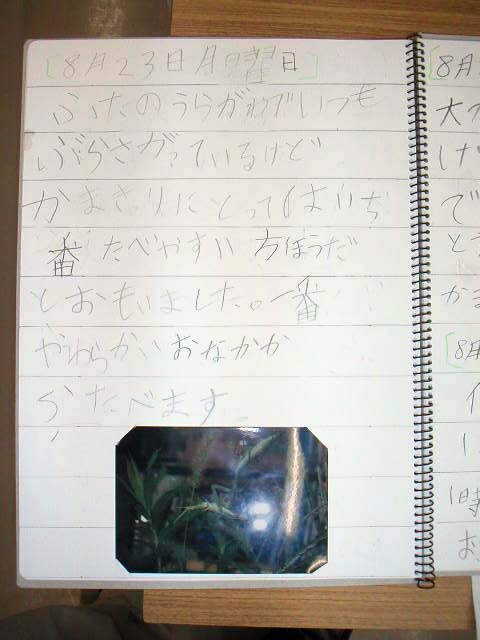 [8月23日月曜日]
ふたのうらが いつも
ぶらさがっているけど
かまきりにとってはいち
番 たべやすい 方ほうだ
とおもいました。一番
やわらかい おなかか
らたべます
[8月
大
け
で
と
かま
[8月
1時
お